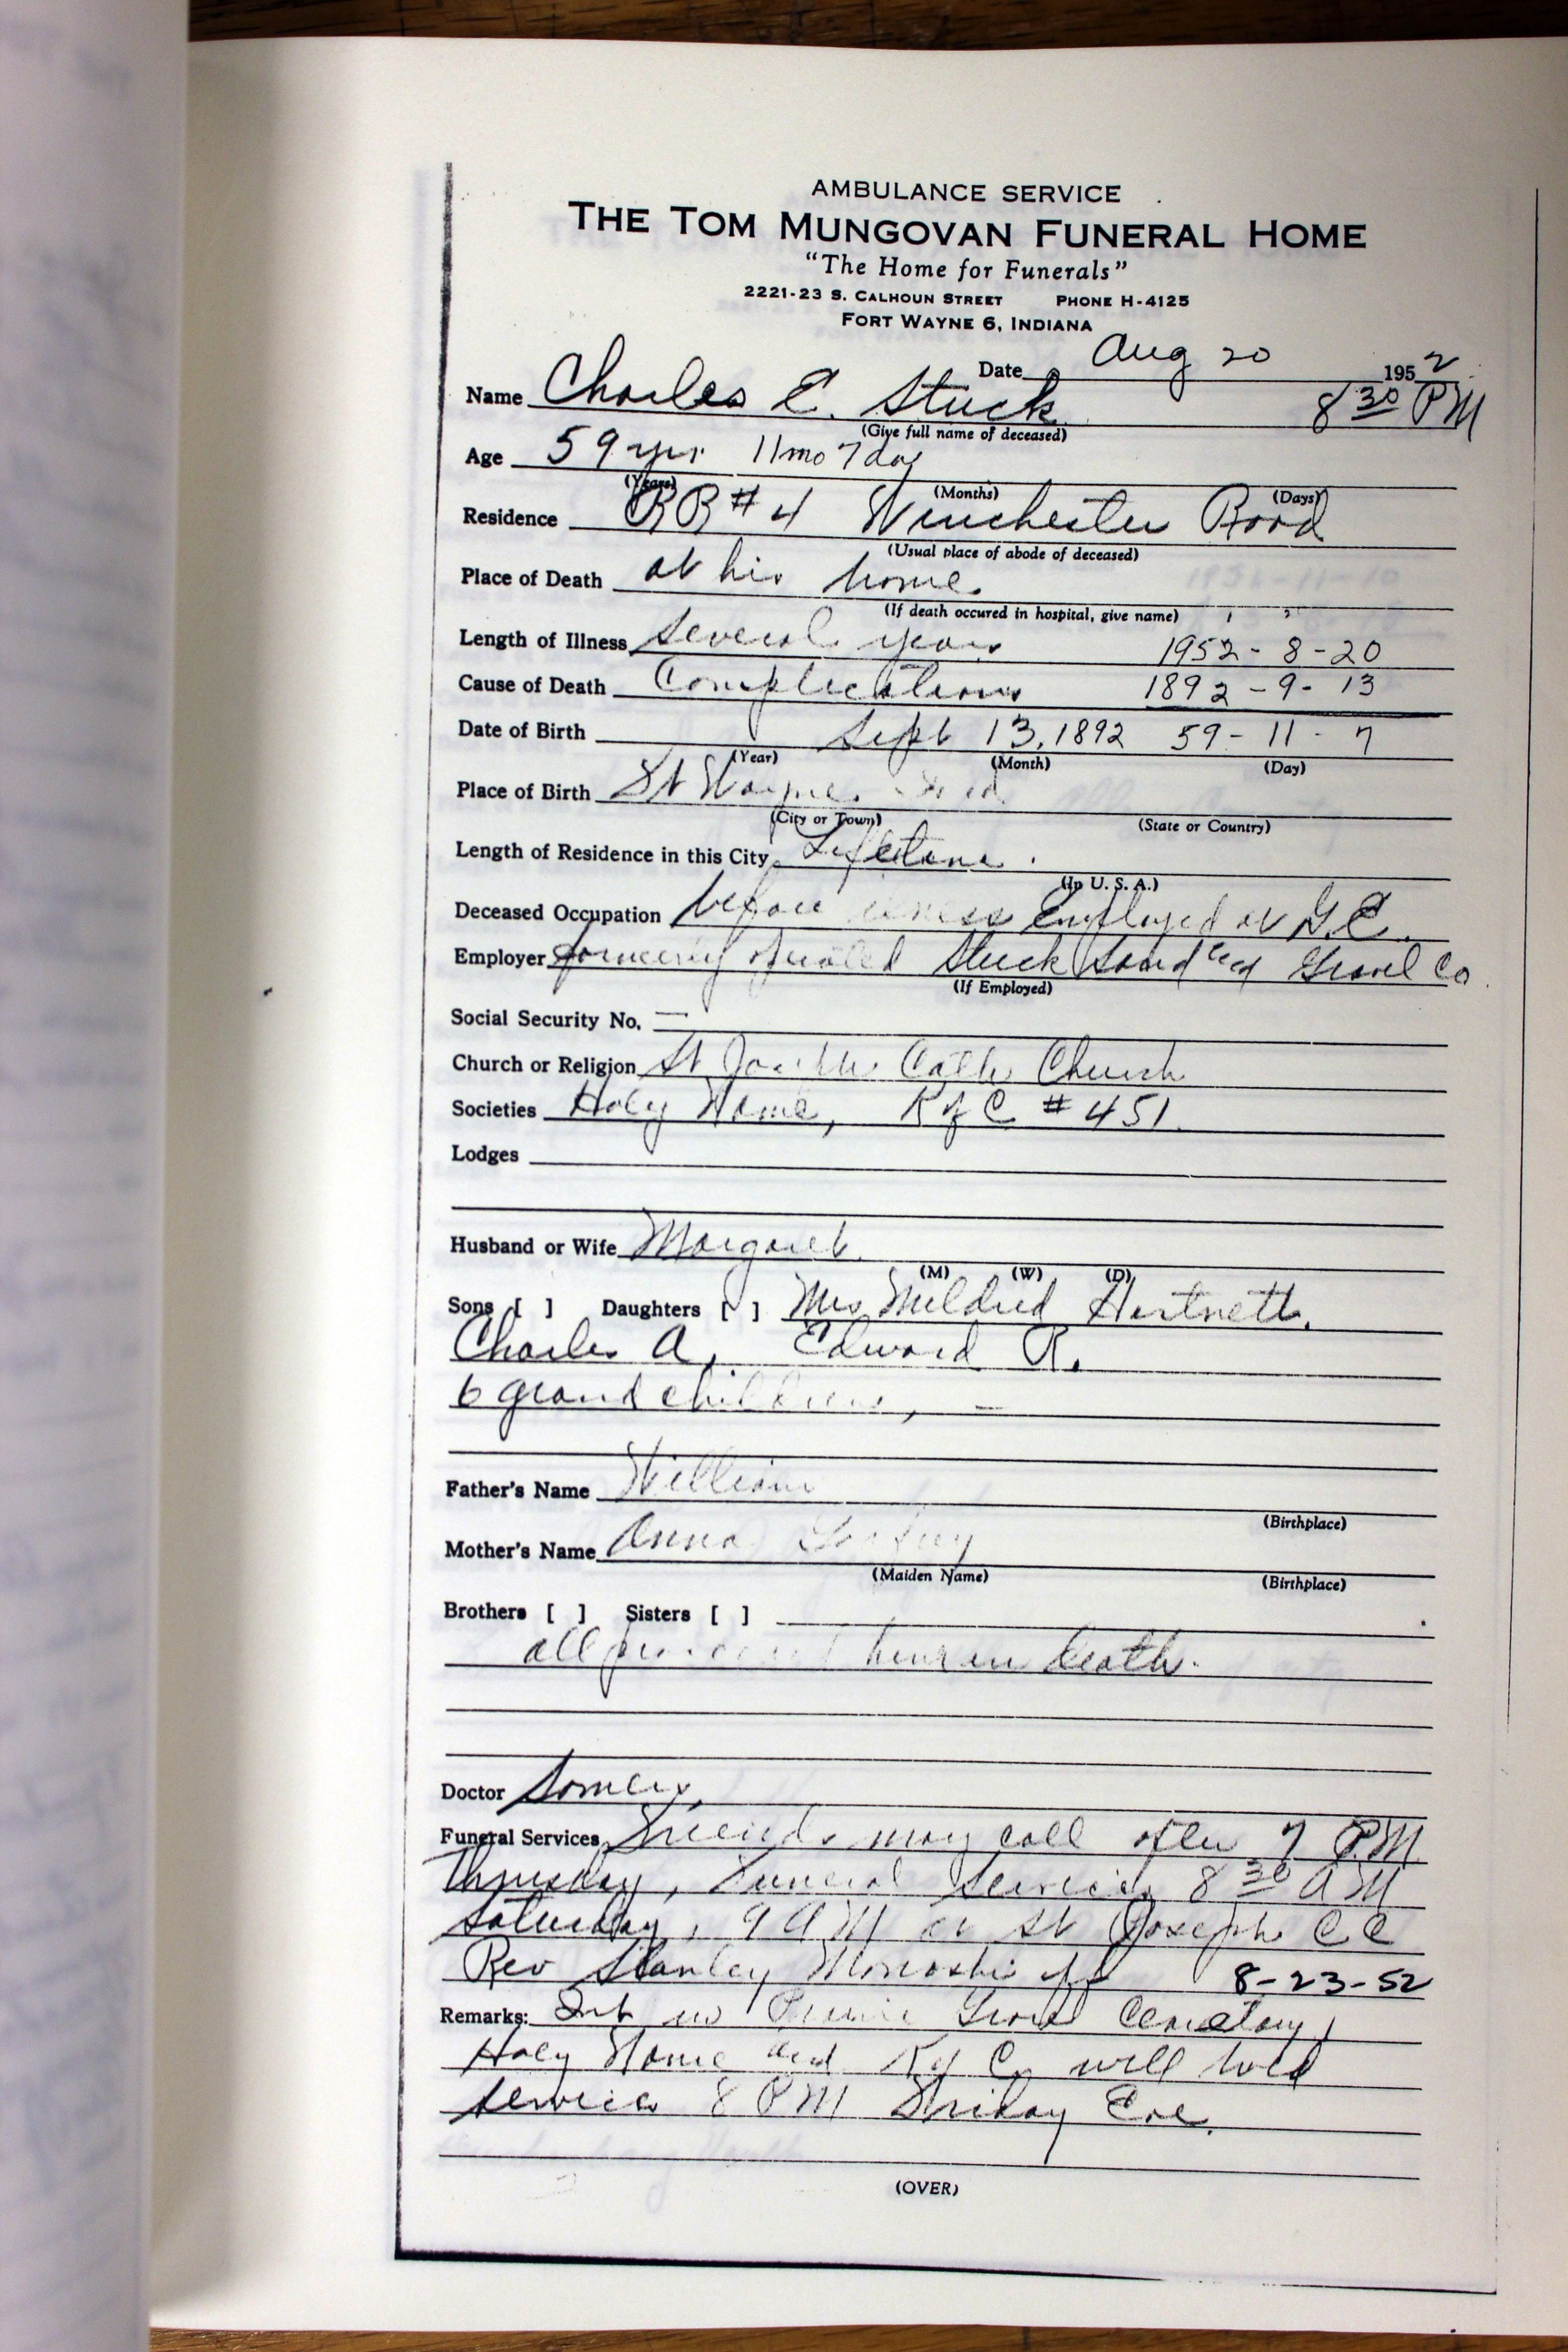 AMBULANCE SERVICE
THE TOM MUNGOVAN FUNERAL HOME
"The Home for Funerals"
2221-23 S. CALHOUN STREET PHONE H-4125
FORT WAYNE 6, INDIANA
Date Aug 20 1952
Name Charles E. Stuck 8 30 PM
(Give full name of deceased)
Age 59 yrs 11 mo 7 day
(Years) (Months) (Days)
Residence RR # 4 Winchester Road
(Usual place of abode of deceased)
Place of Death at his home.
(If death occured in hospital, give name)
Length of Illness Several years 1952 - 8 - 20
Cause of Death Complications 1892 - 9 - 13
Date of Birth Sept 13, 1892 59 - 11 - 7
(Year) (Month) (Day)
Place of Birth Ft Wayne, Ind
(City or Town) (State or Country)
Length of Residence in this City Lifetime.
(In U. S. A.)
Deceased Occupation before illness employed at G.E.
Employer formerly operated Stuck Sand and Gravel Co.
(If Employed)
Social Security No. —
Church or Religion St Joseph Cath Church
Societies Holy Name, K of C # 451.
Lodges
Husband or Wife Margaret.
(M) (W) (D)
Sons [ ] Daughters [ ] Mrs Mildred Hartnett.
Charles A, Edward R.
6 grandchildren, —
Father's Name William
(Birthplace)
Mother's Name Anna
(Maiden Name) (Birthplace)
Brothers [ ] Sisters [ ]
all him in death.
Doctor Somers,
Funeral Services Friends may call after 7 P.M.
Thursday, Funeral Service 8 30 AM
Saturday, 9 AM at St Joseph C C
Rev Stanley off 8-23-52
Remarks: Int in Prairie Grove Cemetery,
Holy Name and K of C. will hold
service 8 PM Friday Eve.
(OVER)